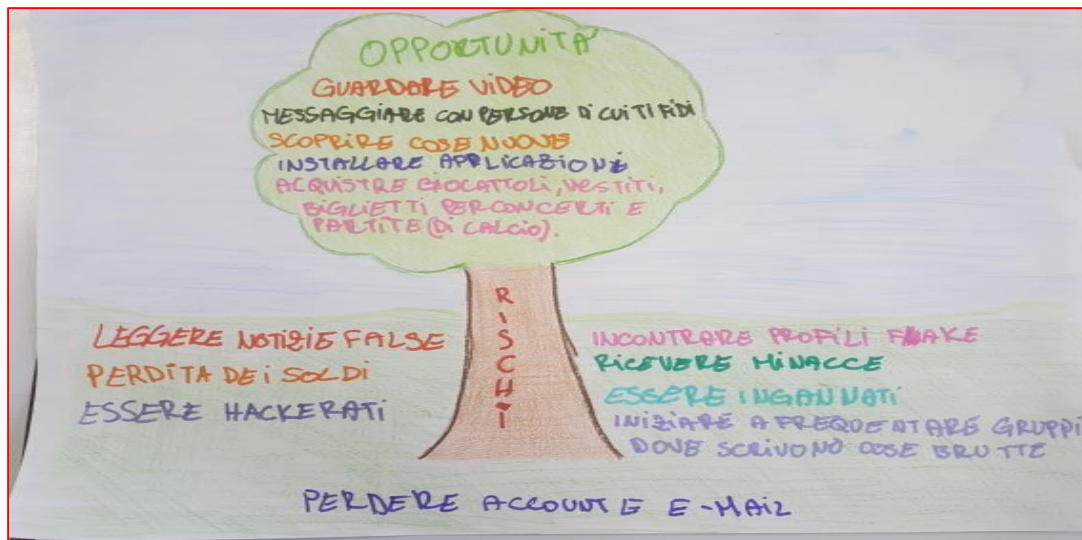 OPPORTUNITA'
GUARDARE VIDEO
MESSAGGIARE CON PERSONE DI CUI TI FIDI
SCOPRIRE COSE NUOVE
INSTALLARE APPLICAZIONI
ACQUISTRE GIOCATTOLI, VESTITI,
BIGLIETTI PER CONCERTI E
PARTITE (DI CALCIO).
RISCHI
LEGGERE NOTIZIE FALSE
PERDITA DEI SOLDI
ESSERE HACKERATI
INCONTRARE PROFILI FAKE
RICEVERE MINACCE
ESSERE INGANNATI
INIZIARE A FREQUENTARE GRUPPI
DOVE SCRIVONO COSE BRUTTE
PERDERE ACCOUNT E E-MAIL